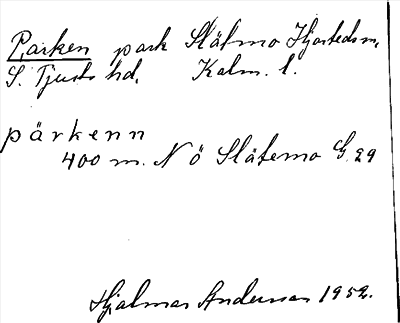 Parken park Slätmo Hjorteds sn,
S. Tjusts hd. Kalm. l.
pärkenn
400 m. N ö Slätemo G. 29
Hjalmar Andersson 1952.